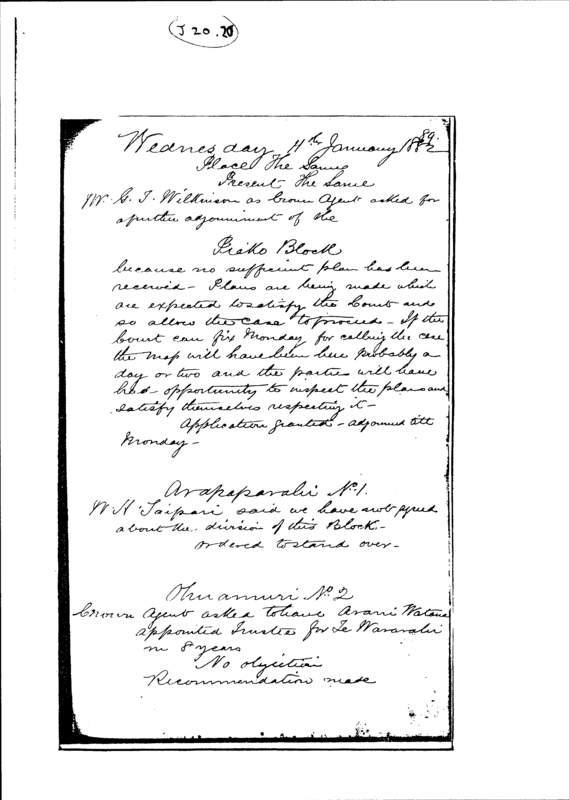 J 20. 20
Wednesday 11th January 1882 89.
Place The Same
Present The Same
Mr. G. T. Wilkinson as Crown Agent asked for
a further adjournment of the
Piako Block
because no sufficient plan has been
received - Plans are being made which
are expected to satisfy the Court and
so allow the case to proceed - If the
Court can fix Monday for calling the case
the map will have been here probably a
day or two and the parties will have
had opportunity to inspect the plans and
satisfy themselves respecting it -
Application granted - adjourned till
Monday -
Arapaparahi No. 1.
W. H. Taipari said we have not agreed
about the division of this Block -
ordered to stand over -
Ohuamuri No. 2
Crown Agent asked to have Arani Watana
appointed Trustee for Te Wararahi
m 8 years
No objection
Recommendation made